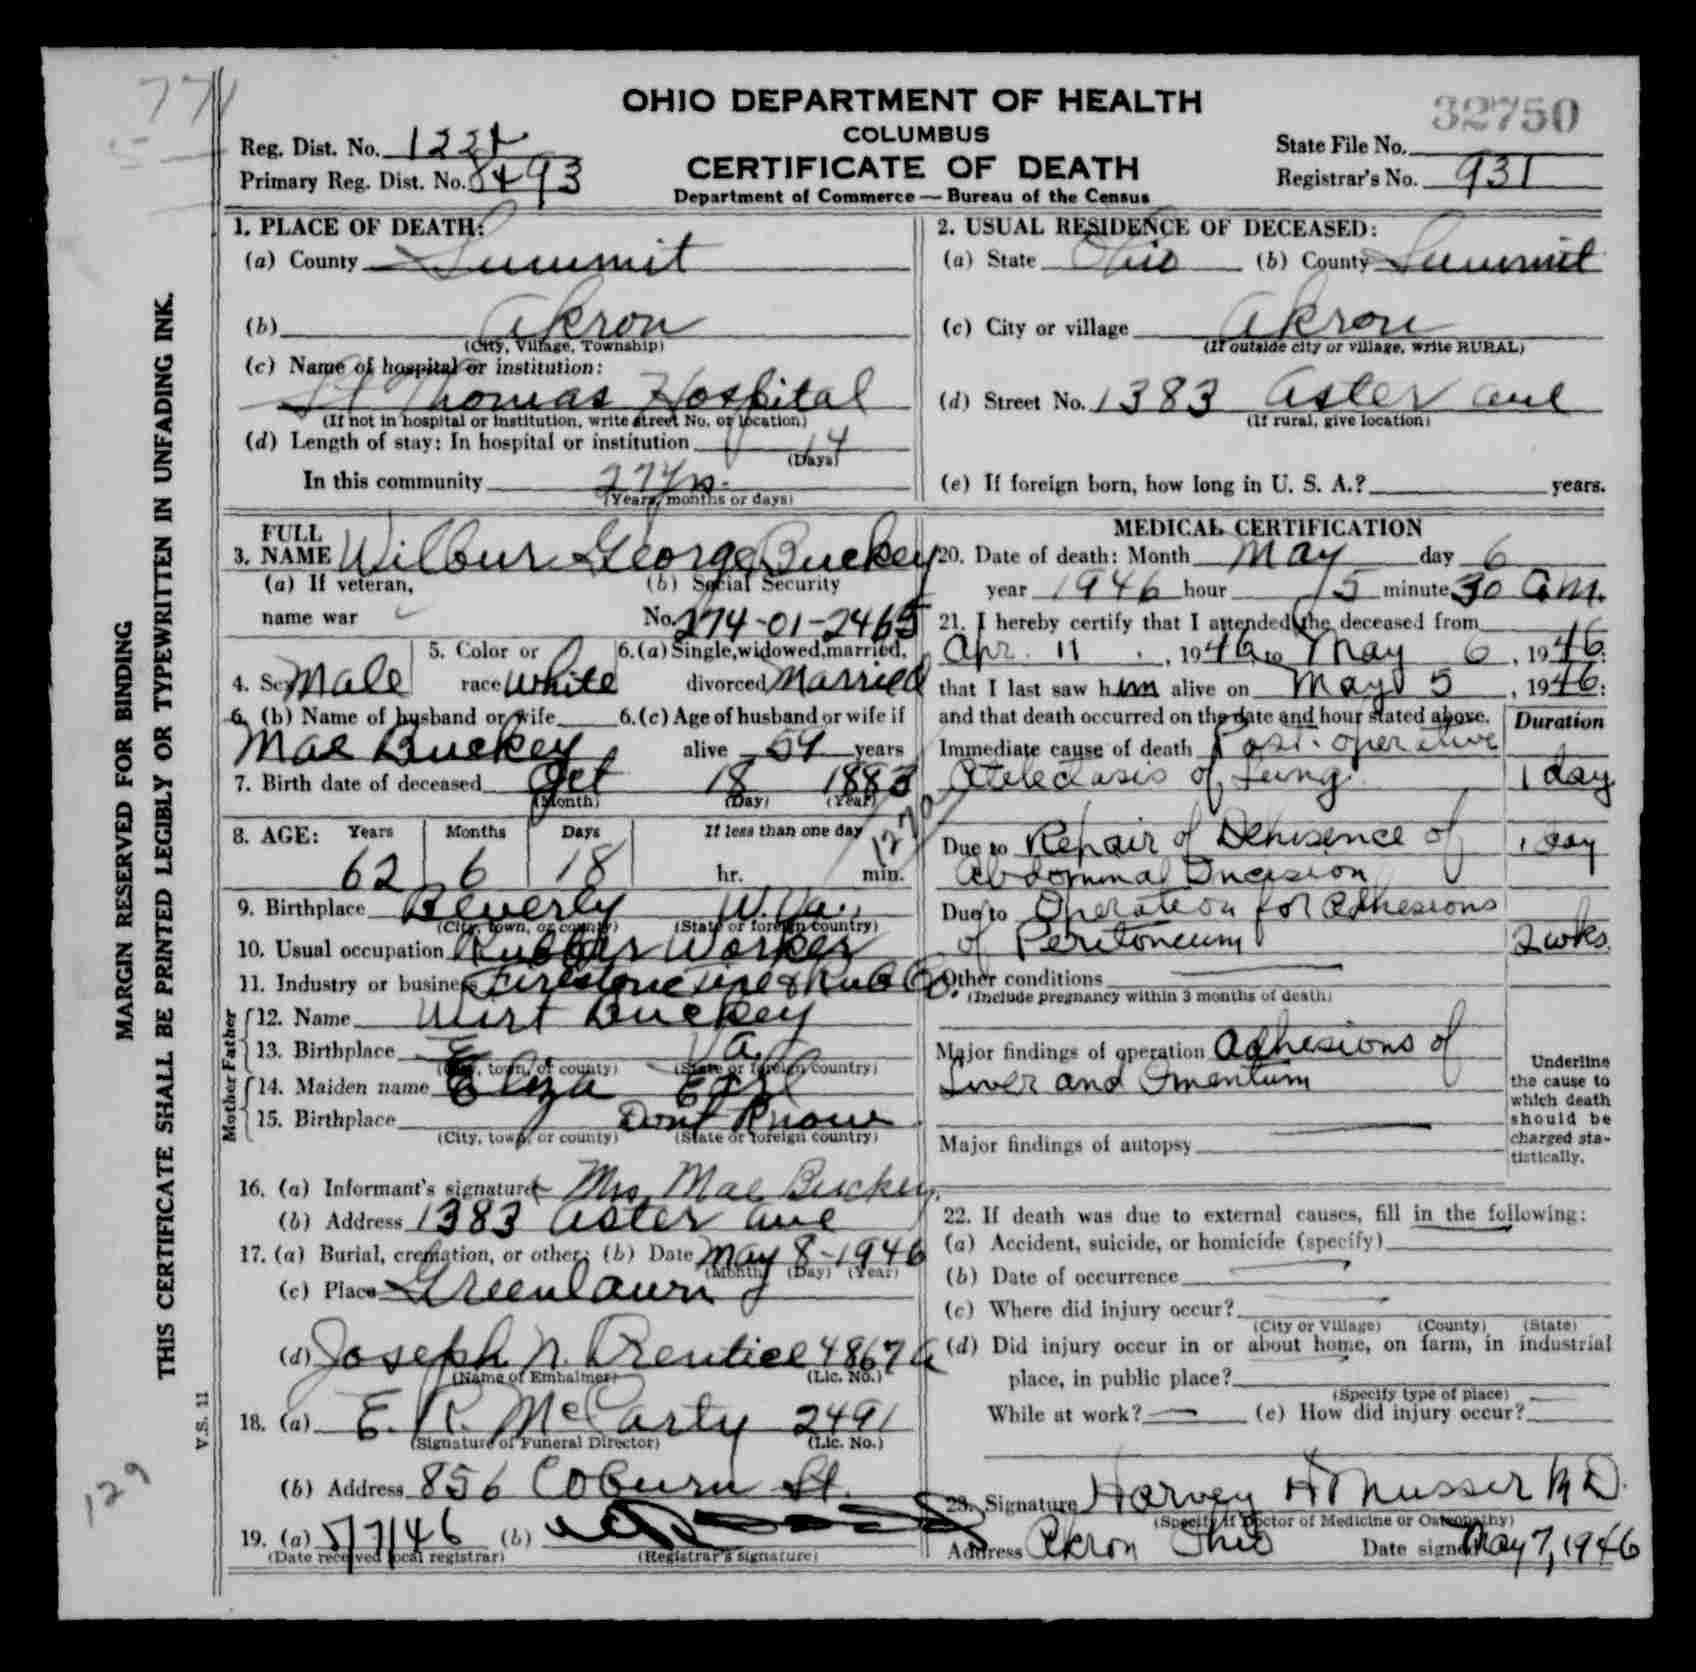 OHIO DEPARTMENT OF HEALTH
COLUMBUS
CERTIFICATE OF DEATH
Department of Commerce — Bureau of the Census
32750
Reg. Dist. No.
Primary Reg. Dist. No. 8493
State File No.
Registrar's No. 931
1. PLACE OF DEATH:
(a) County Summit
(b) Akron
(City, Village, Township)
(c) Name of hospital or institution:
St Thomas Hospital
(If not in hospital or institution, write street No. or location)
(d) Length of stay: In hospital or institution 14
(Days)
In this community 27 yrs.
(Years, months or days)
2. USUAL RESIDENCE OF DECEASED:
(a) State Ohio (b) County Summit
(c) City or village Akron
(If outside city or village, write RURAL)
(d) Street No. 1383 Aster ave
(If rural, give location)
(e) If foreign born, how long in U. S. A.? years.
3. FULL NAME Wilbur George Buckey
(a) If veteran, name war
(b) Social Security No. 274-01-2465
4. Sex Male
5. Color or race White
6. (a) Single, widowed, married, divorced Married
6. (b) Name of husband or wife Mae Buckey
6. (c) Age of husband or wife if alive 54 years
7. Birth date of deceased Oct 18 1883
(Month) (Day) (Year)
8. AGE: Years Months Days If less than one day
62 6 18 hr. min.
9. Birthplace Beverly W. Va.
(City, town, or county) (State or foreign country)
10. Usual occupation Rubber Worker
11. Industry or business Firestone Tire & Rub Co.
Father
12. Name Wirt Buckey
13. Birthplace Va.
(City, town, or county) (State or foreign country)
Mother
14. Maiden name Eliza
15. Birthplace Dont Know
(City, town, or county) (State or foreign country)
16. (a) Informant's signature Mrs Mae Buckey
(b) Address 1383 Aster ave
17. (a) Burial, cremation, or other; (b) Date May 8-1946
(Month) (Day) (Year)
(c) Place Greenlawn
(d) Joseph N. Prentice 4867A
(Name of Embalmer) (Lic. No.)
18. (a) E. R. McCarty 2491
(Signature of Funeral Director) (Lic. No.)
(b) Address 856 Coburn St.
19. (a) 5/7/46 (b)
(Date received local registrar) (Registrar's signature)
MEDICAL CERTIFICATION
20. Date of death: Month May day 6
year 1946 hour 5 minute 30 a.m.
21. I hereby certify that I attended the deceased from
Apr. 11, 1946 to May 6, 1946
that I last saw him alive on May 5, 1946:
and that death occurred on the date and hour stated above.
Duration
Immediate cause of death Post-operative
Atelectasis of Lung 1 day
Due to Repair of Dehisence of 1 day
Abdominal Incision
Due to Operation for Adhesions
of Peritoneum 2 wks.
Other conditions
(Include pregnancy within 3 months of death)
Major findings of operation Adhesions of
Liver and Omentum
Major findings of autopsy
Underline the cause to which death should be charged statistically.
22. If death was due to external causes, fill in the following:
(a) Accident, suicide, or homicide (specify)
(b) Date of occurrence
(c) Where did injury occur?
(City or Village) (County) (State)
(d) Did injury occur in or about home, on farm, in industrial
place, in public place?
(Specify type of place)
While at work? (e) How did injury occur?
23. Signature Harvey H Musser M D.
(Specify if Doctor of Medicine or Osteopathy)
Address Akron Ohio Date signed May 7, 1946
MARGIN RESERVED FOR BINDING
THIS CERTIFICATE SHALL BE PRINTED LEGIBLY OR TYPEWRITTEN IN UNFADING INK.
V.S. 11
129